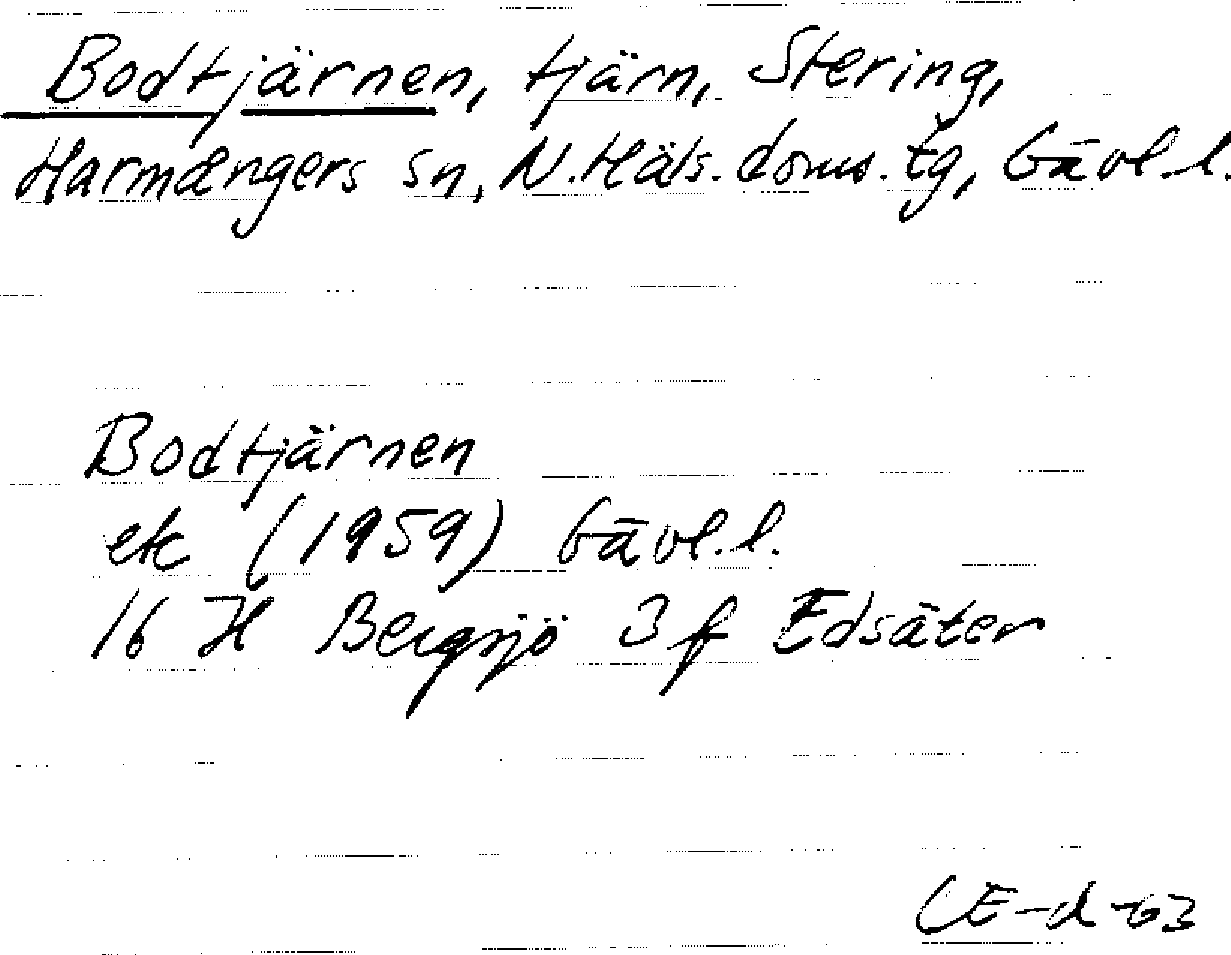 Bodtjärnen, tjärn, Stering,
Harmångers sn, N. Häls. doms. tg, Gävl. l.
Bodtjärnen
ek (1959) Gävl. l.
16 H Bergsjö 3 f Edsäter
CE-d-63